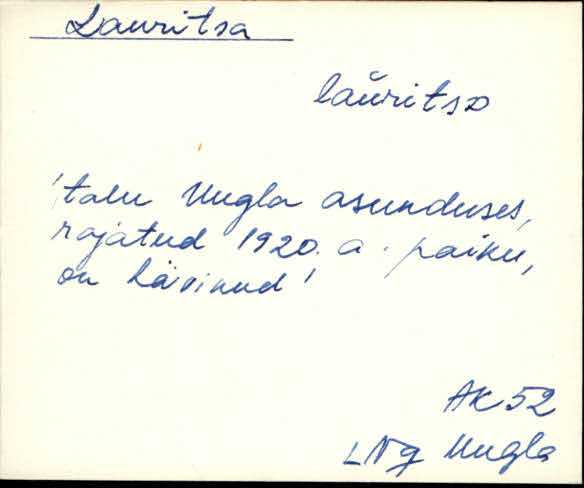 Lauritsa
lau̬ritsɒ
'talu Uugla asunduses,
rajatud 1920. a. paiku,
on hävinud'
AK 52
LNg Uugla